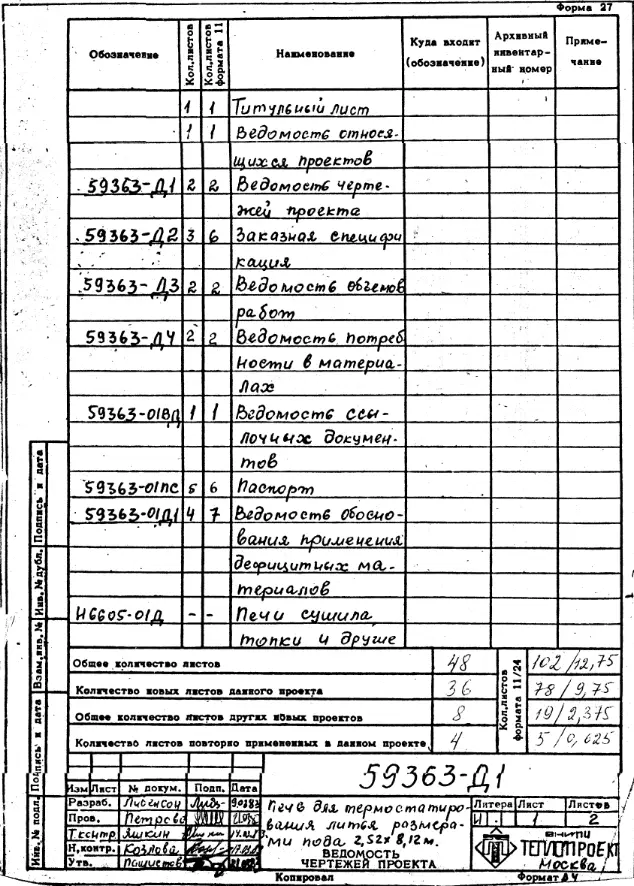 Форма 27
Обозначение
Кол.листов
Кол.листов формата 11
Наименование
Куда входит (обозначение)
Архивный инвентарный номер
Примечание
1 1 Титульный лист
1 1 Ведомость относя-
щихся проектов
59363-Д1 2 2 Ведомость черте-
жей проекта
59363-Д2 3 6 Заказная специфи
кация
59363-Д3 2 2 Ведомость объемов
работ
59363-Д4 2 2 Ведомость потреб
ности в материа-
лах
59363-01ВД 1 1 Ведомость ссы-
лочных докумен-
тов
59363-01ПС 5 6 Паспорт
59363-01Д1 4 7 Ведомость обосно-
вания применения
дефицитных ма-
териалов
Н6605-01Д - - Печи сушила,
топки и другие
Общее количество листов 48
Количество новых листов данного проекта 36
Общее количество листов других новых проектов 8
Количество листов повторно примененных в данном проекте 4
Кол.листов формата 11/24
102/12,75
78/9,75
19/2,375
5/0,625
59363-Д1
Изм Лист № докум. Подп. Дата
Разраб. Ливенсон
Пров. Петрова
Т.контр. Яшкин
Н.контр. Козлова
Утв.
Печь для термостатиро-
вания литья размера-
ми пода 2,52х8,12м.
ВЕДОМОСТЬ
ЧЕРТЕЖЕЙ ПРОЕКТА
Литера Лист Листов
И 1 2
ВНИПИ
ТЕПЛОПРОЕКТ
Москва
Копировал
Формат А4
Инв.№ подл.
Подпись и дата
Взам.инв.№
Инв.№ дубл.
Подпись и дата